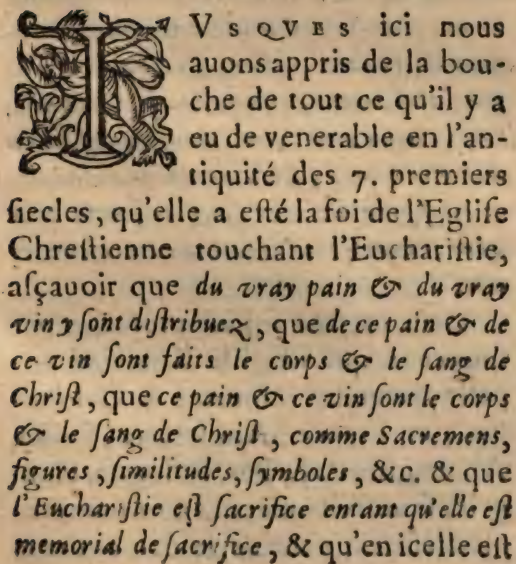 IVSQVES ici nous
auons appris de la bou-
che de tout ce qu'il y a
eu de venerable en l'an-
tiquité des 7. premiers
ſiecles, qu'elle a eſté la foi de l'Egliſe
Chreſtienne touchant l'Euchariſtie,
aſçauoir que du vray pain & du vray
vin y ſont diſtribuez, que de ce pain & de
ce vin ſont faits le corps & le ſang de
Chriſt, que ce pain & ce vin ſont le corps
& le ſang de Chriſt, comme Sacremens,
figures, ſimilitudes, ſymboles, &c. & que
l'Euchariſtie eſt ſacrifice entant qu'elle eſt
memorial de ſacrifice, & qu'en icelle eſt